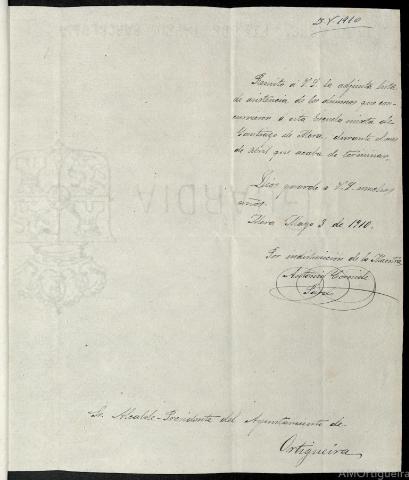 3-V-1910
Remito á V.S. la adjunta lista
de asistencia de los alumnos que con-
currieron á esta Escuela mixta de
Santiago de Mera, durante el mes
de Abril que acaba de terminar.
Dios guarde á V.S. muchos
años.
Mera Mayo 3 de 1910.
Por indisposición de la Maestra
Antonio
Sr. Alcalde-Presidente del Ayuntamiento de
Ortigueira
AMOrtigueira